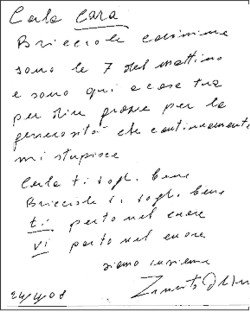 Carla Cara
Briciole carissime
sono le 7 del mattino
e sono qui a casa tua
per dire grazie per la
generosità che continuamente
mi stupisce
Carla ti vogli bene
Briciole vi vogli bene
ti porto nel cuore
vi porto nel cuore
siamo insieme